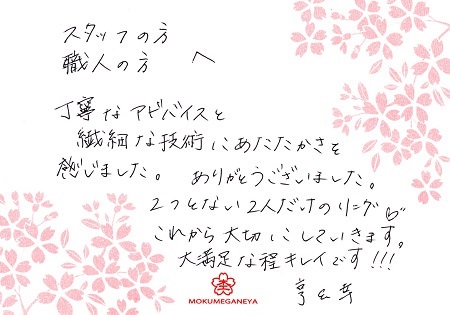 スタッフの方
職人の方 へ
丁寧なアドバイスと
繊細な技術にあたたかさを
感じました。 ありがとうございました。
2つとない2人だけのリング♡
これから大切にしていきます。
大満足な程キレイです!!!
MOKUMEGANEYA